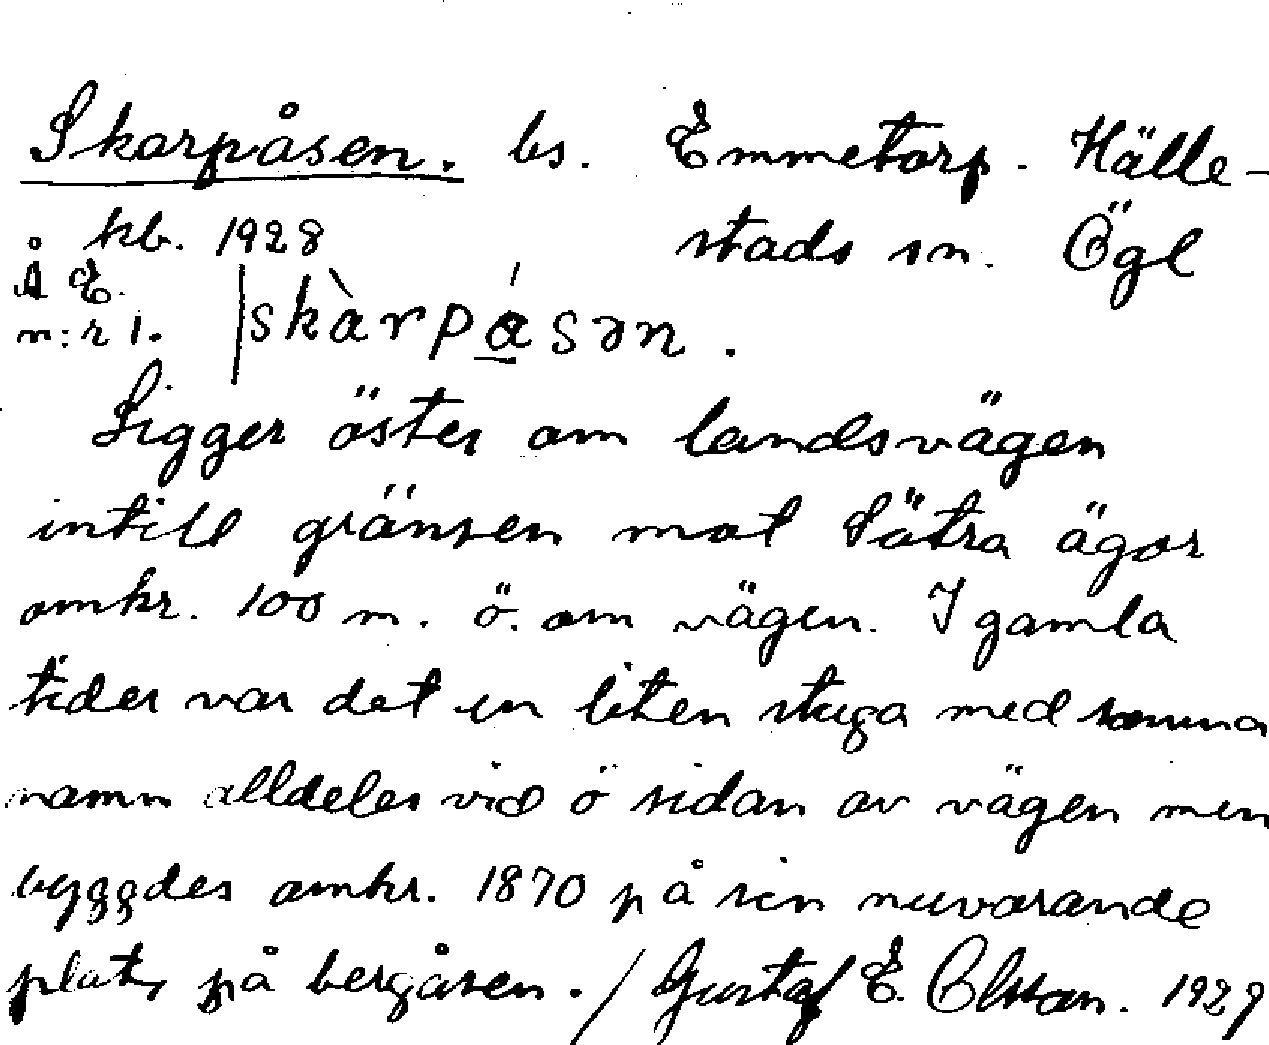 Skarpåsen. bs. Emmetorp. Hälle-
kb. 1928 stads sn. Ögl
Å E.
n:r 1. |skàrpásən.
Ligger öster om landsvägen
intill gränsen mot Sätra ägor
omkr. 100 m. ö. om vägen. I gamla
tider var det en liten stuga med samma
namn alldeles vid ö sidan av vägen men
byggdes omkr. 1870 på sin nuvarande
plats på bergåsen. / Gustaf E. Olsson. 1929